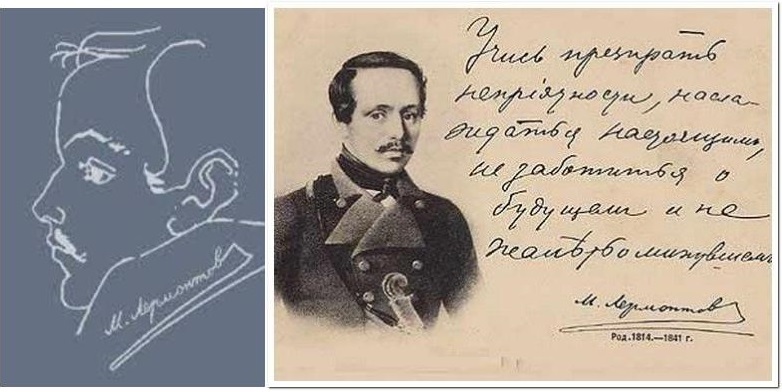 М. Лермонтов
Учись презирать
непрiятности, насла-
ждаться настоящимъ,
не заботиться о
будущемъ и не
жалѣть о минувшемъ
М. Лермонтов
Род.1814.—1841 г.